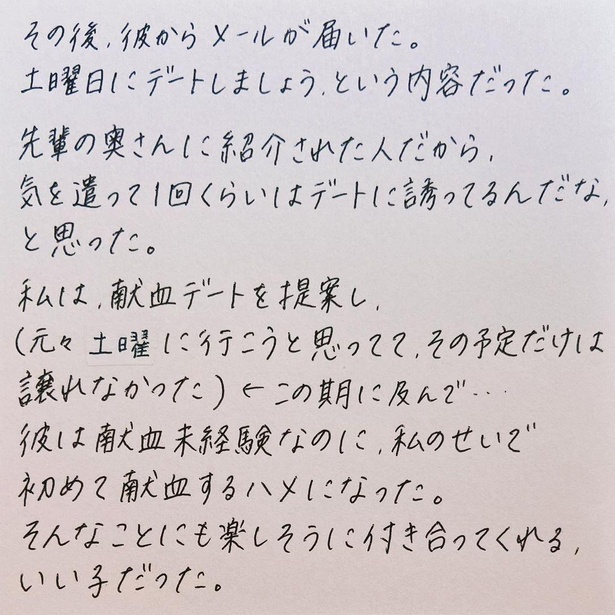 その後、彼からメールが届いた。
土曜日にデートしましょう、という内容だった。
先輩の奥さんに紹介された人だから、
気を遣って1回くらいはデートに誘ってるんだな、
と思った。
私は、献血デートを提案し、
(元々土曜に行こうと思ってて、その予定だけは
譲れなかった)←この期に及んで…
彼は献血未経験なのに、私のせいで
初めて献血するハメになった。
そんなことにも楽しそうに付き合ってくれる、
いい子だった。